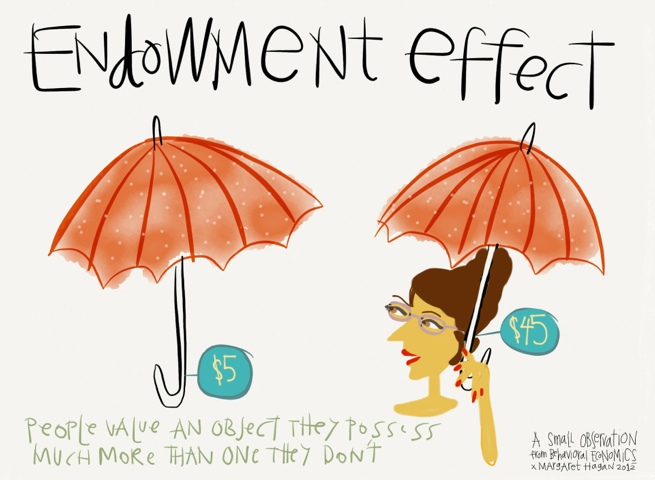 ENdoWMENT effect
$5
$45
PEOPLE VALUE AN OBJECT THEY POSSESS
MUCH MORE THAN ONE THEY DON'T
A SMALL OBSERVATION
from BEhaVIORAL ECONOMICS
x MARGARET HAGAN 2012